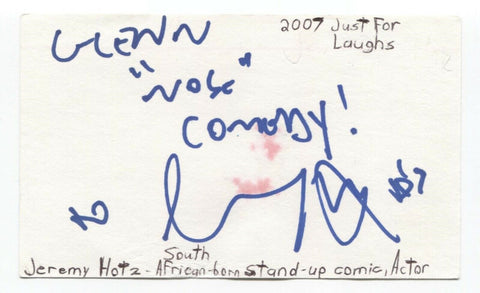 2007 Just For
Laughs
GLENN
"NOSE"
COMEDY!
South
Jeremy Hotz - African-born stand-up comic, Actor